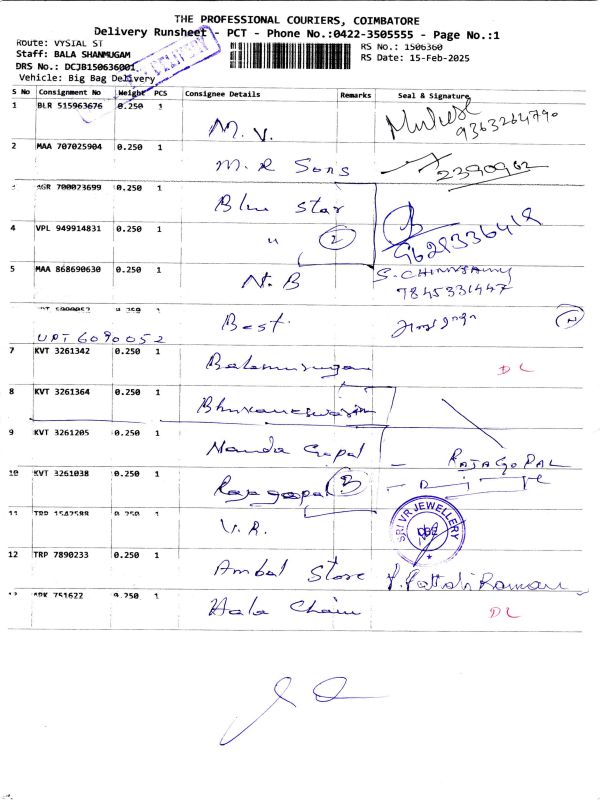 THE PROFESSIONAL COURIERS, COIMBATORE
Delivery Runsheet - PCT - Phone No.:0422-3505555 - Page No.:1
Route: VYSIAL ST RS No.: 1506360
Staff: BALA SHANMUGAM RS Date: 15-Feb-2025
DRS No.: DCJB150636001
Vehicle: Big Bag Delivery
S No Consignment No Weight PCS Consignee Details Remarks Seal & Signature
1 BLR 515963676 0.250 1 M. V. 9363264790
2 MAA 707025904 0.250 1 M. R Sons 2390962
3 AGR 700023699 0.250 1 Blue Star
4 VPL 949914831 0.250 1 " 2 9629336419
5 MAA 868690630 0.250 1 N. B S. CHINNSAMY
7845331447
Best.
UPT 6090052
7 KVT 3261342 0.250 1 Balamurugan DL
8 KVT 3261364 0.250 1 Bhuvaneswarim
9 KVT 3261205 0.250 1 Nanda Gopal RAJAGOPAL
10 KVT 3261038 0.250 1 Rajagopal 3
11 TRP 1547588 0.250 1 V. R. SRI VR JEWELLERY CBE
12 TRP 7890233 0.250 1 Ambal Store P. Pattabi Raman
13 APK 751622 0.250 1 Hala Chain DL